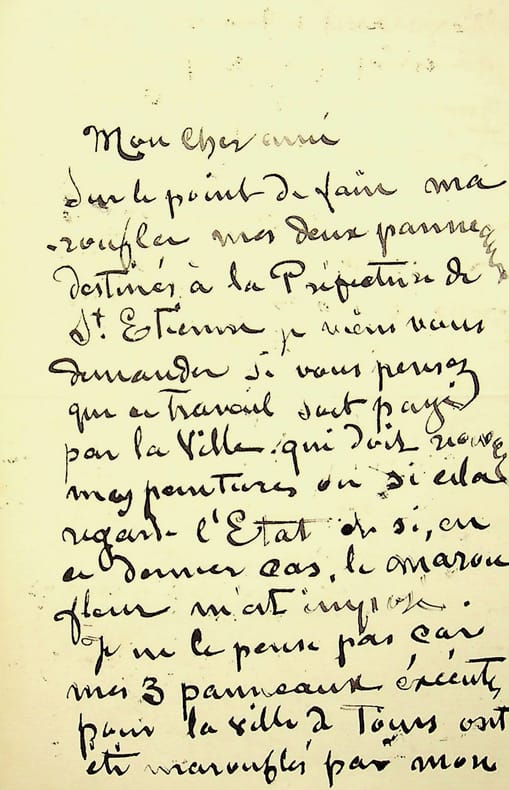 Mon cher ami
Sur le point de faire ma
roufler mes deux panneaux
destinés à la Préfecture de
St. Etienne je viens vous
demander si vous pensez
que ce travail soit payé
par la Ville qui doit recevoir
mes peintures ou si cela
regarde l'Etat et si, en
ce dernier cas, le marou
fleur m'est imposé.
Je ne le pense pas car
mes 3 panneaux éxécutés
pour la ville de Tours ont
été marouflés par mon